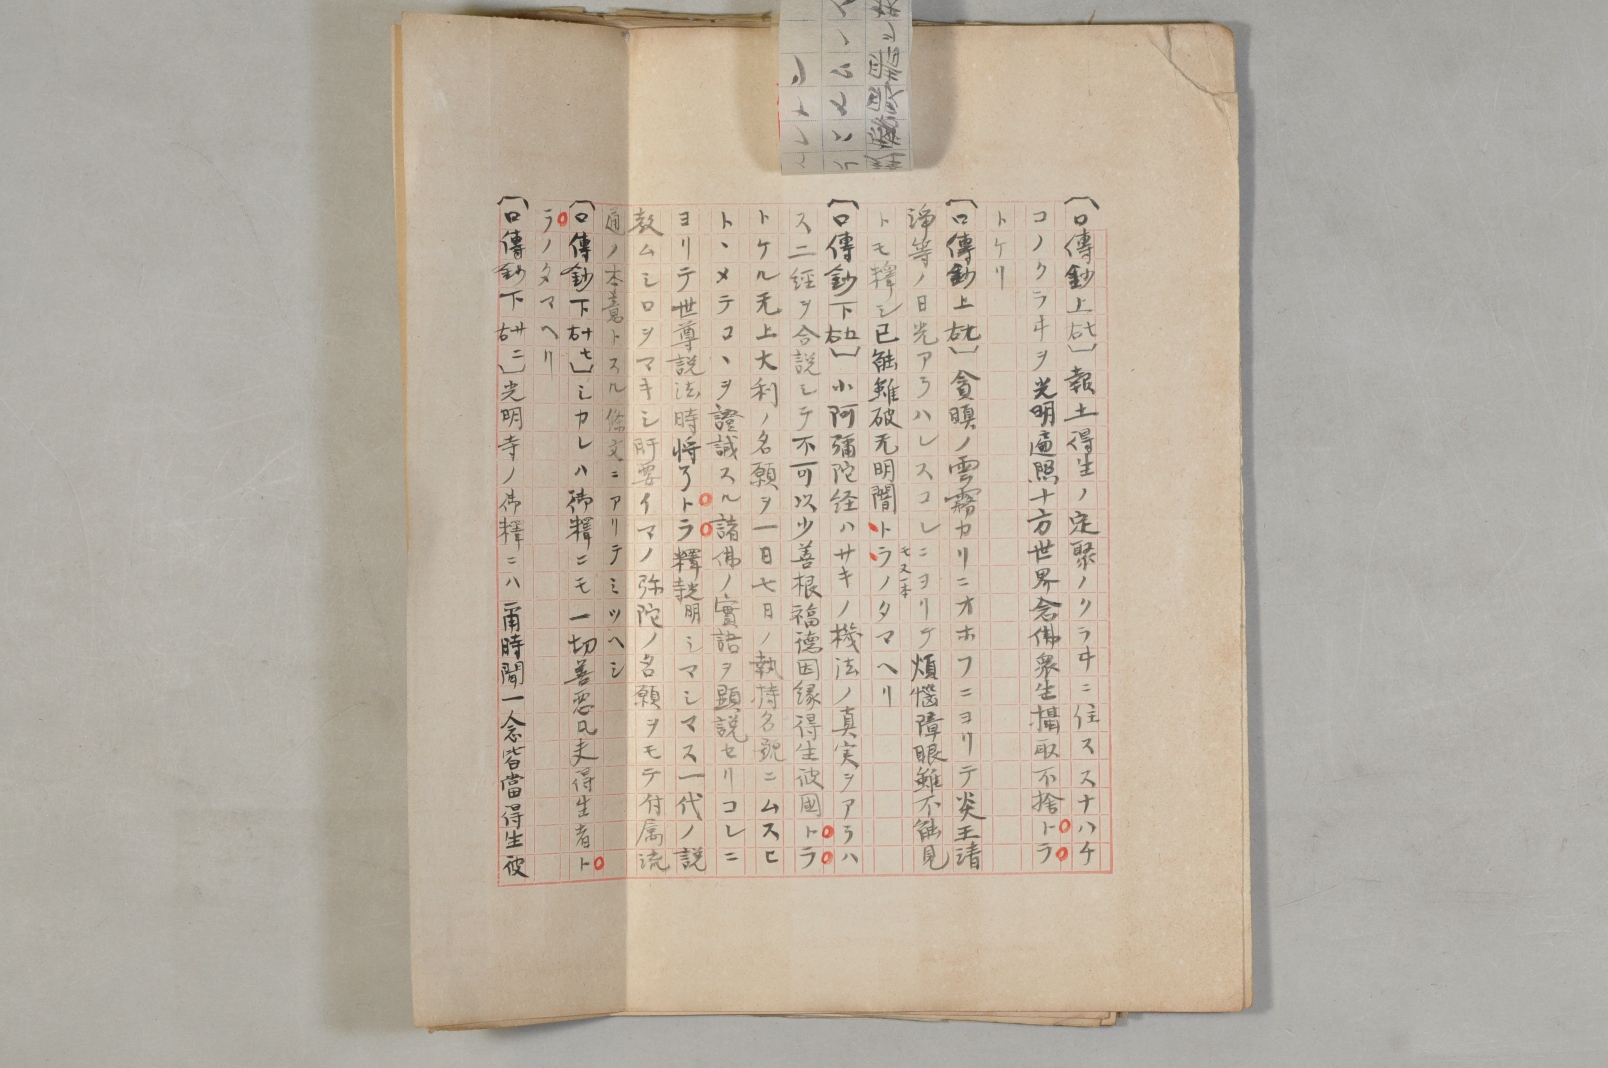 〔口傳鈔上右七〕報土得生ノ定聚ノクラヰニ住ススナハチ
コノクラヰヲ光明遍照十方世界念佛衆生攝取不捨トラ
トケリ
〔口傳鈔上右九〕貪瞋ノ雲霧カリニオホフニヨリテ炎王清
淨等ノ日光アラハレスコレニヨリテ煩惱障眼雖不能見
トモ釋シ已能雖破无明闇トラノタマヘリ
モ又一本
〔口傳鈔下右五〕小阿彌陀経ハサキノ機法ノ真実ヲアラハ
ス二経ヲ合説シテ不可以少善根福德因縁得生彼國トラ
トケル无上大利ノ名願ヲ一日七日ノ執持名號ニムスヒ
トヽメテコヽヲ證誠スル諸佛ノ實語ヲ顕説セリコレニ
ヨリテ世尊説法時将了トラ釋説明シマシマス一代ノ説
教ムシロヲマキシ肝要イマノ弥陀ノ名願ヲモテ付属流
通ノ本意トスル條文ニアリテミツヘシ
〔口傳鈔下右十七〕シカレハ御釋ニモ一切善惡凡夫得生者ト
ラノタマヘリ
〔口傳鈔下右廿二〕光明寺ノ御釋ニハ一爾時聞一念皆當得生彼